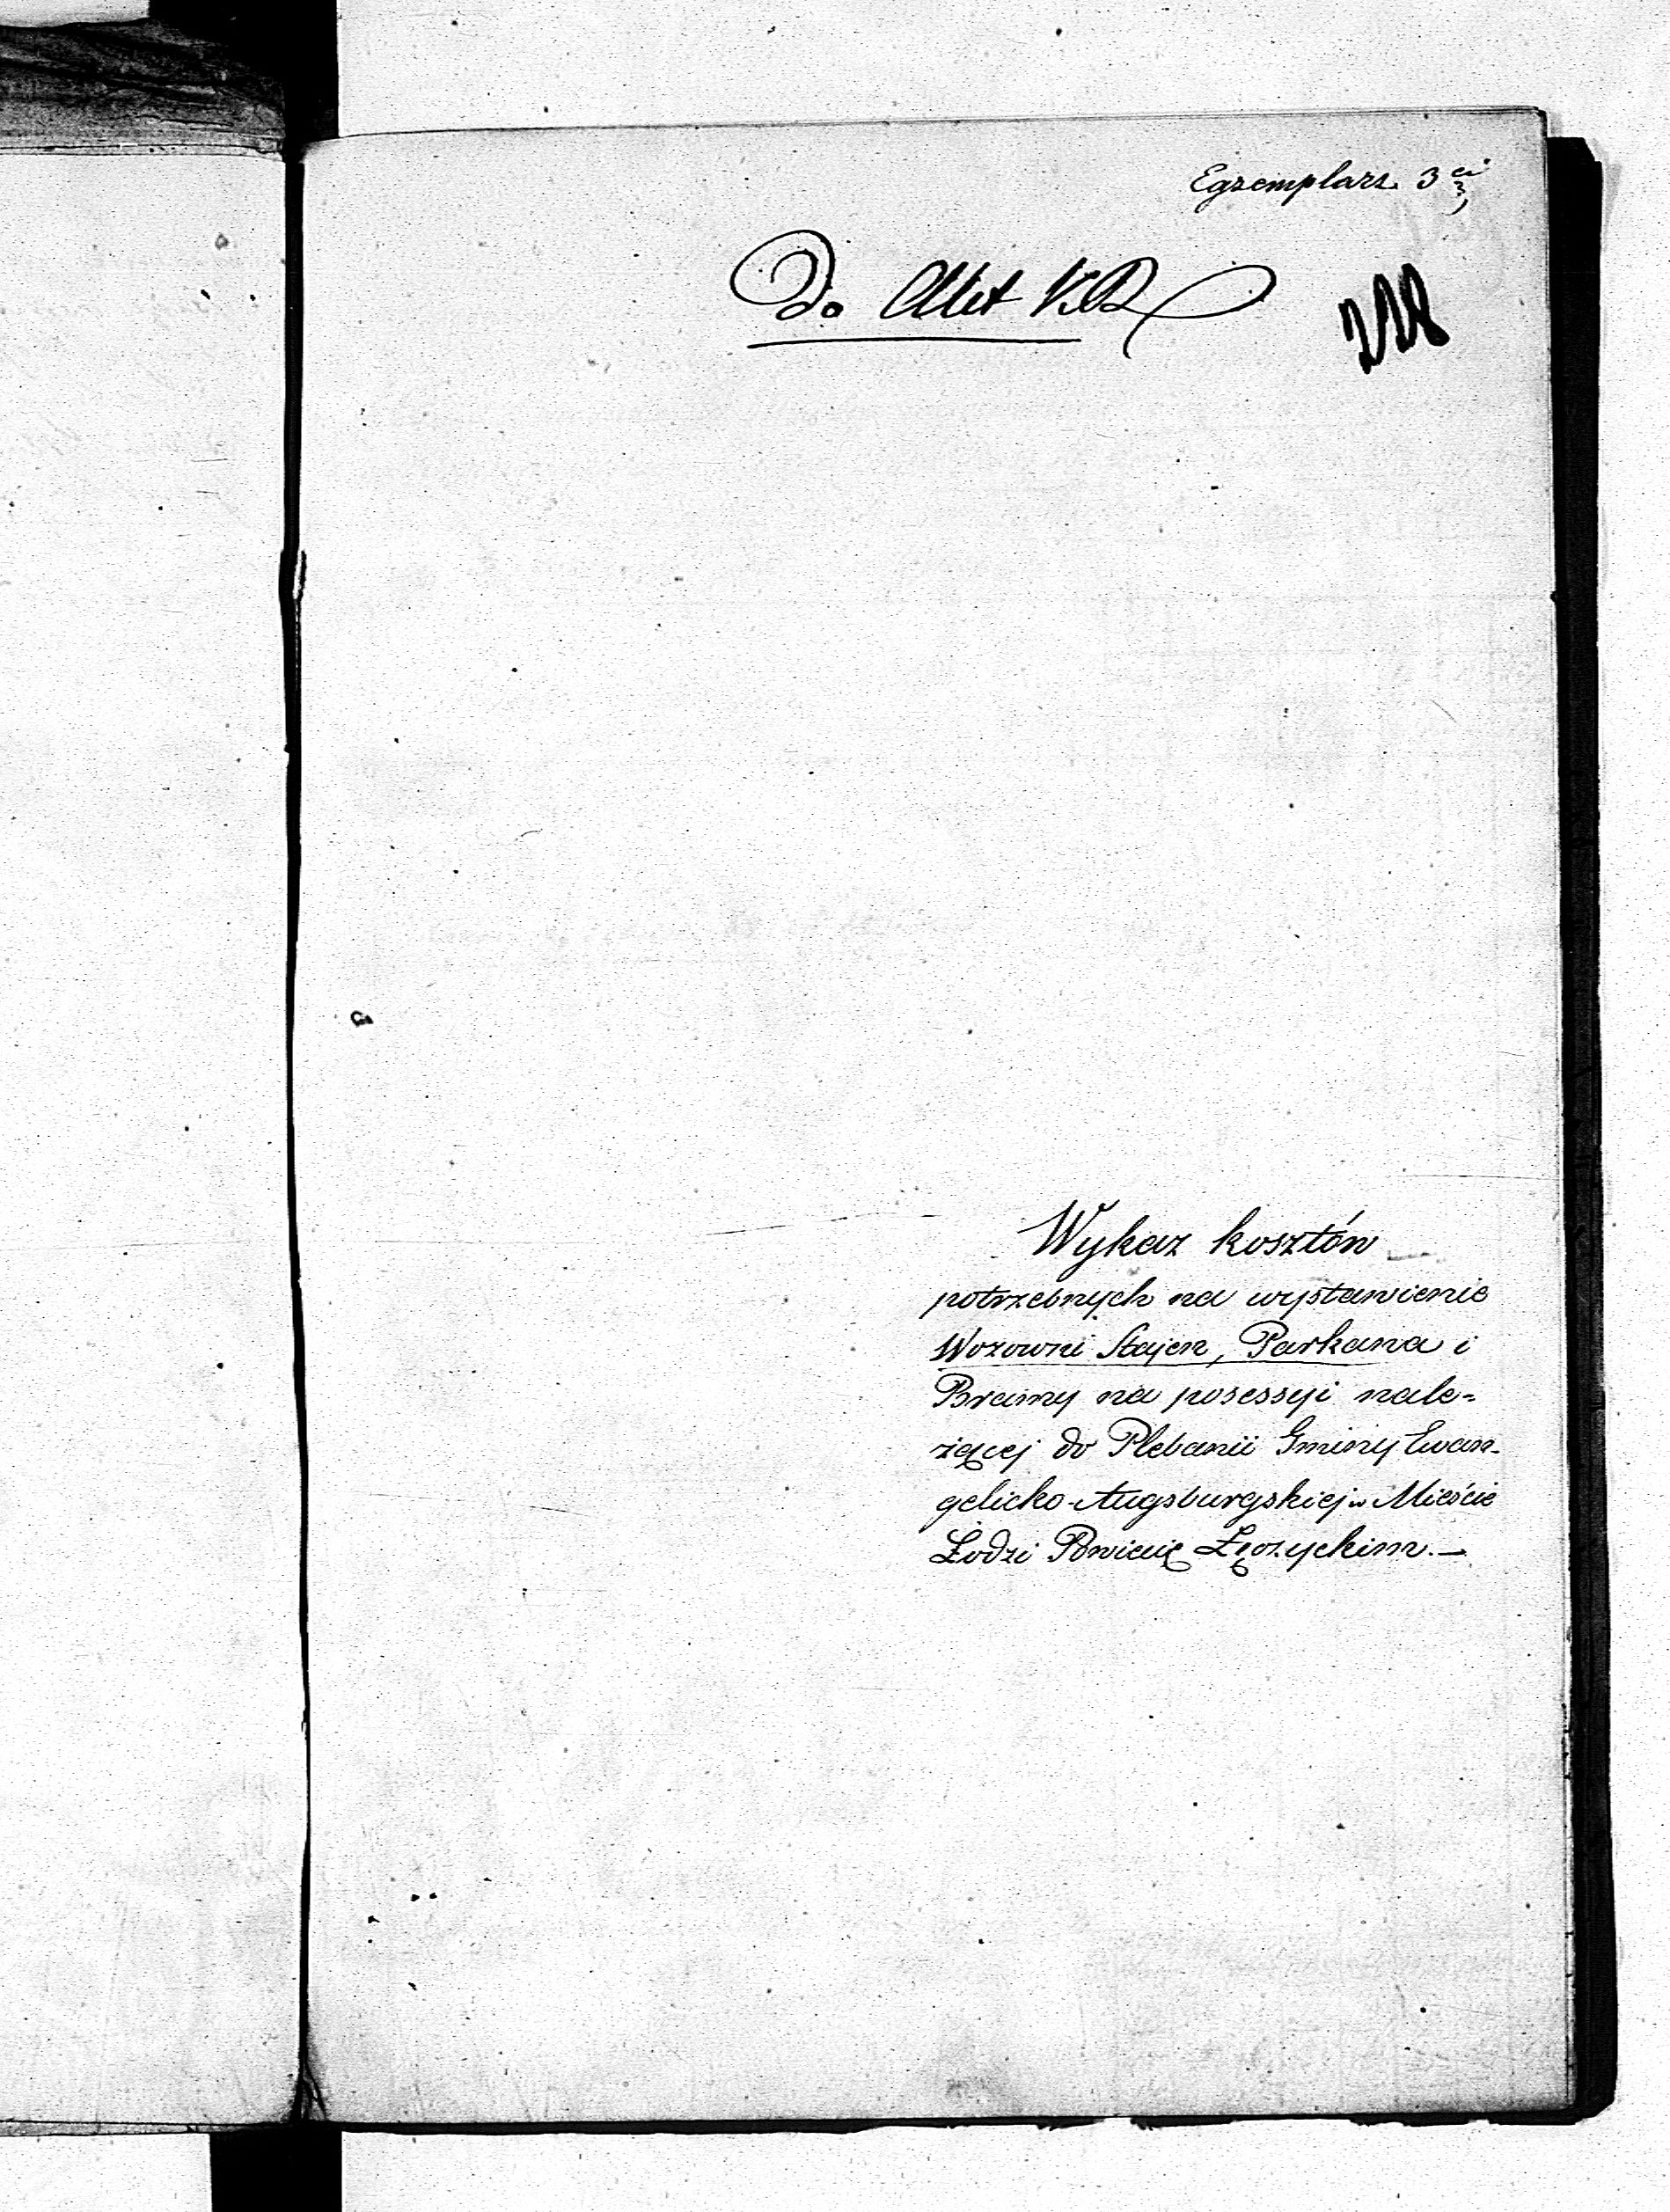 Egzemplarz 3ci
Do Akt K.R.
228
Wykaz kosztów
potrzebnych na wystawienie
Wozowni Stajen, Parkana i
Bramy na posessyi nale-
żącej do Plebanii Gminy Ewan-
gelicko-Augsburgskiej w Mieście
Łodzi Powiecie Łęczyckim.—